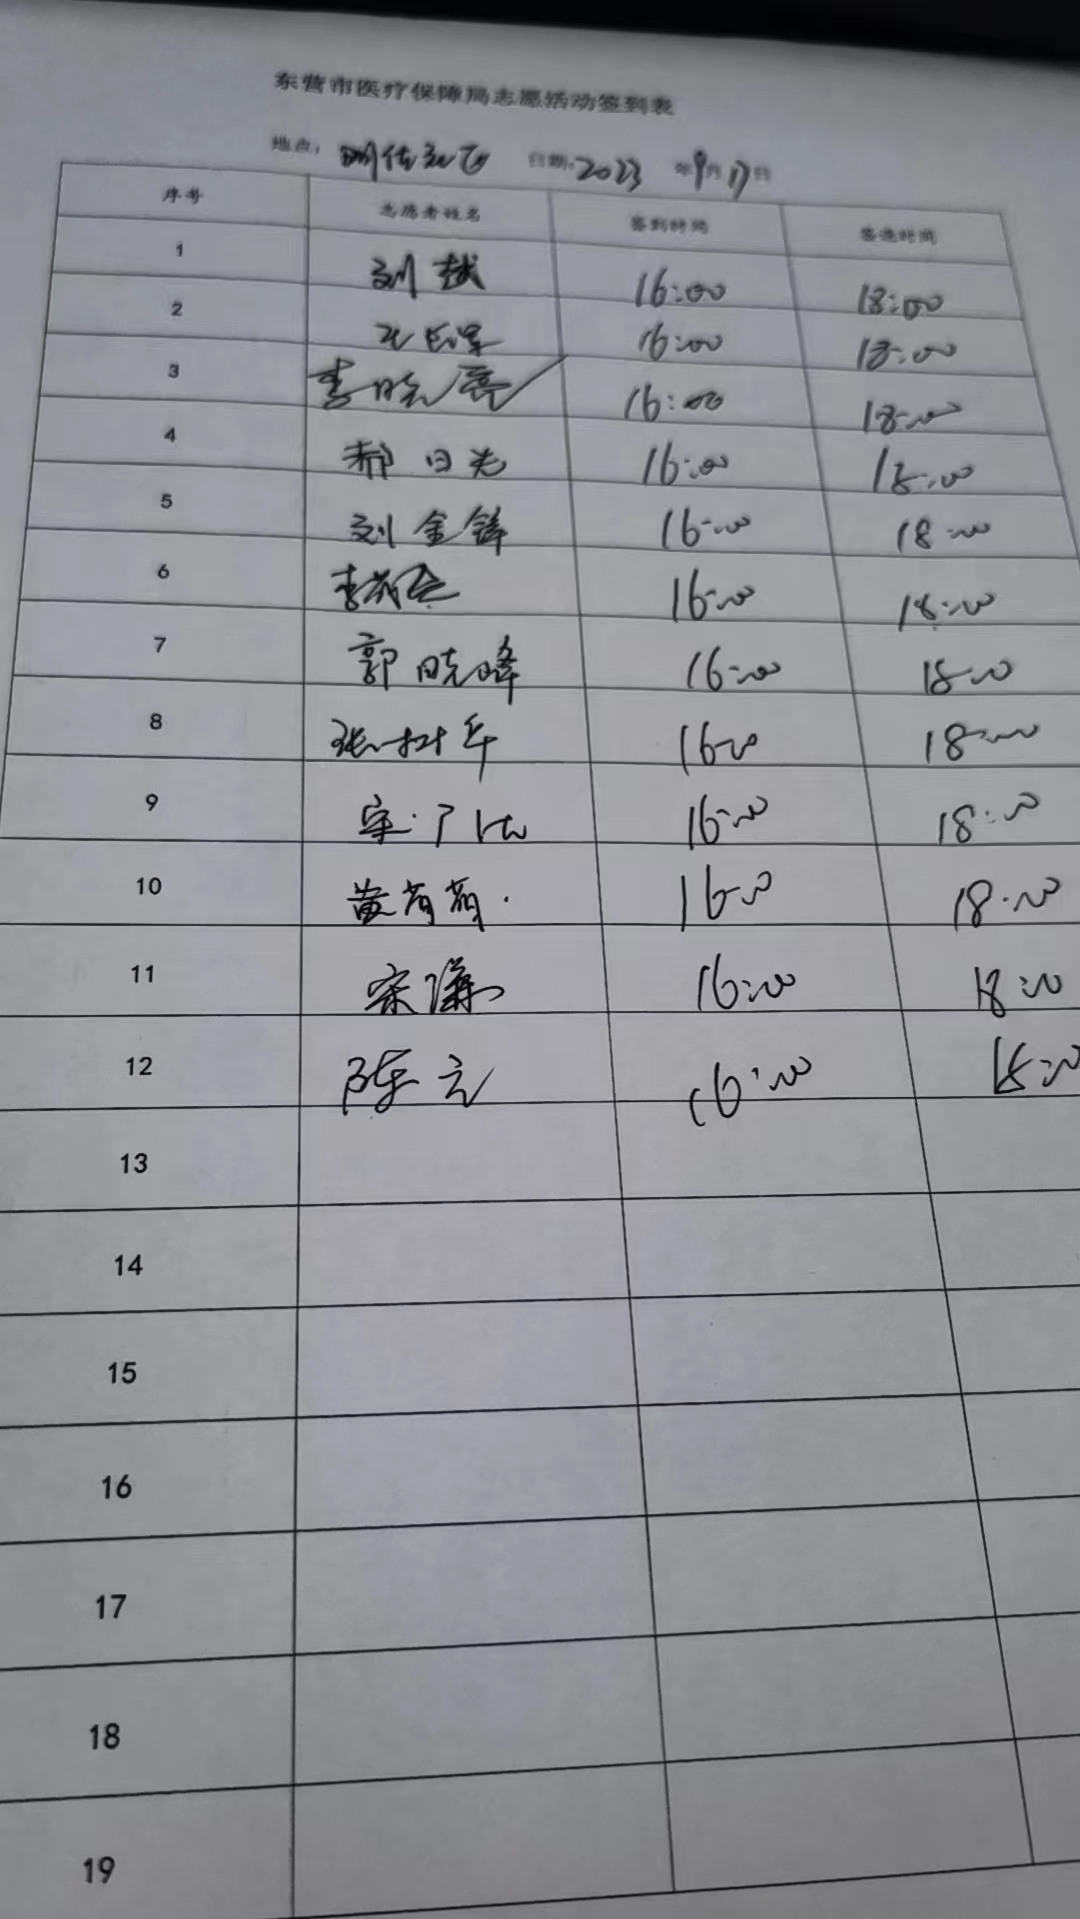 东营市医疗保障局志愿活动签到表
地点: 日期:2023年9月17日
序号 志愿者姓名 签到时间 签退时间
1 刘越 16:00 18:00
2 16:00 18:00
3 李晓亮 16:00 18:00
4 郝日光 16:00 18:00
5 刘金锋 16:00 18:00
6 李 16:00 18:00
7 郭晓峰 16:00 18:00
8 张树军 16:00 18:00
9 16:00 18:00
10 黄萌萌 16:00 18:00
11 宋潇 16:00 18:00
12 陈云 16:00 18:00
13
14
15
16
17
18
19